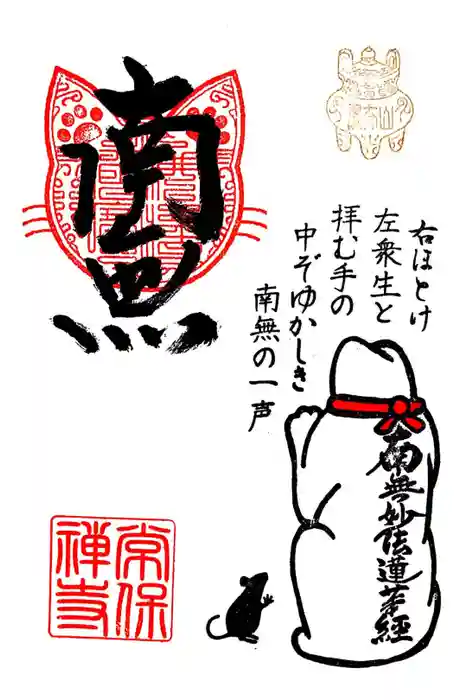 右ほとけ
左衆生と
拝む手の
中ぞゆかしき
南無の一声
南無妙法蓮華經
南無
常保
禅寺